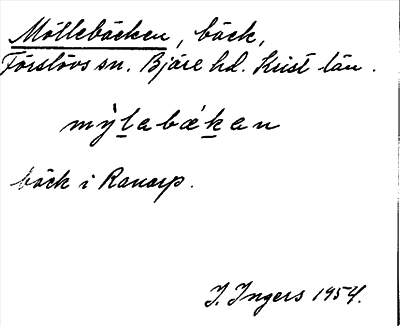 Möllebäcken, bäck,
Förslövs sn. Bjäre hd. Krist län.
mỳlabǽkan
bäck i Ranarp.
I. Ingers 1954.